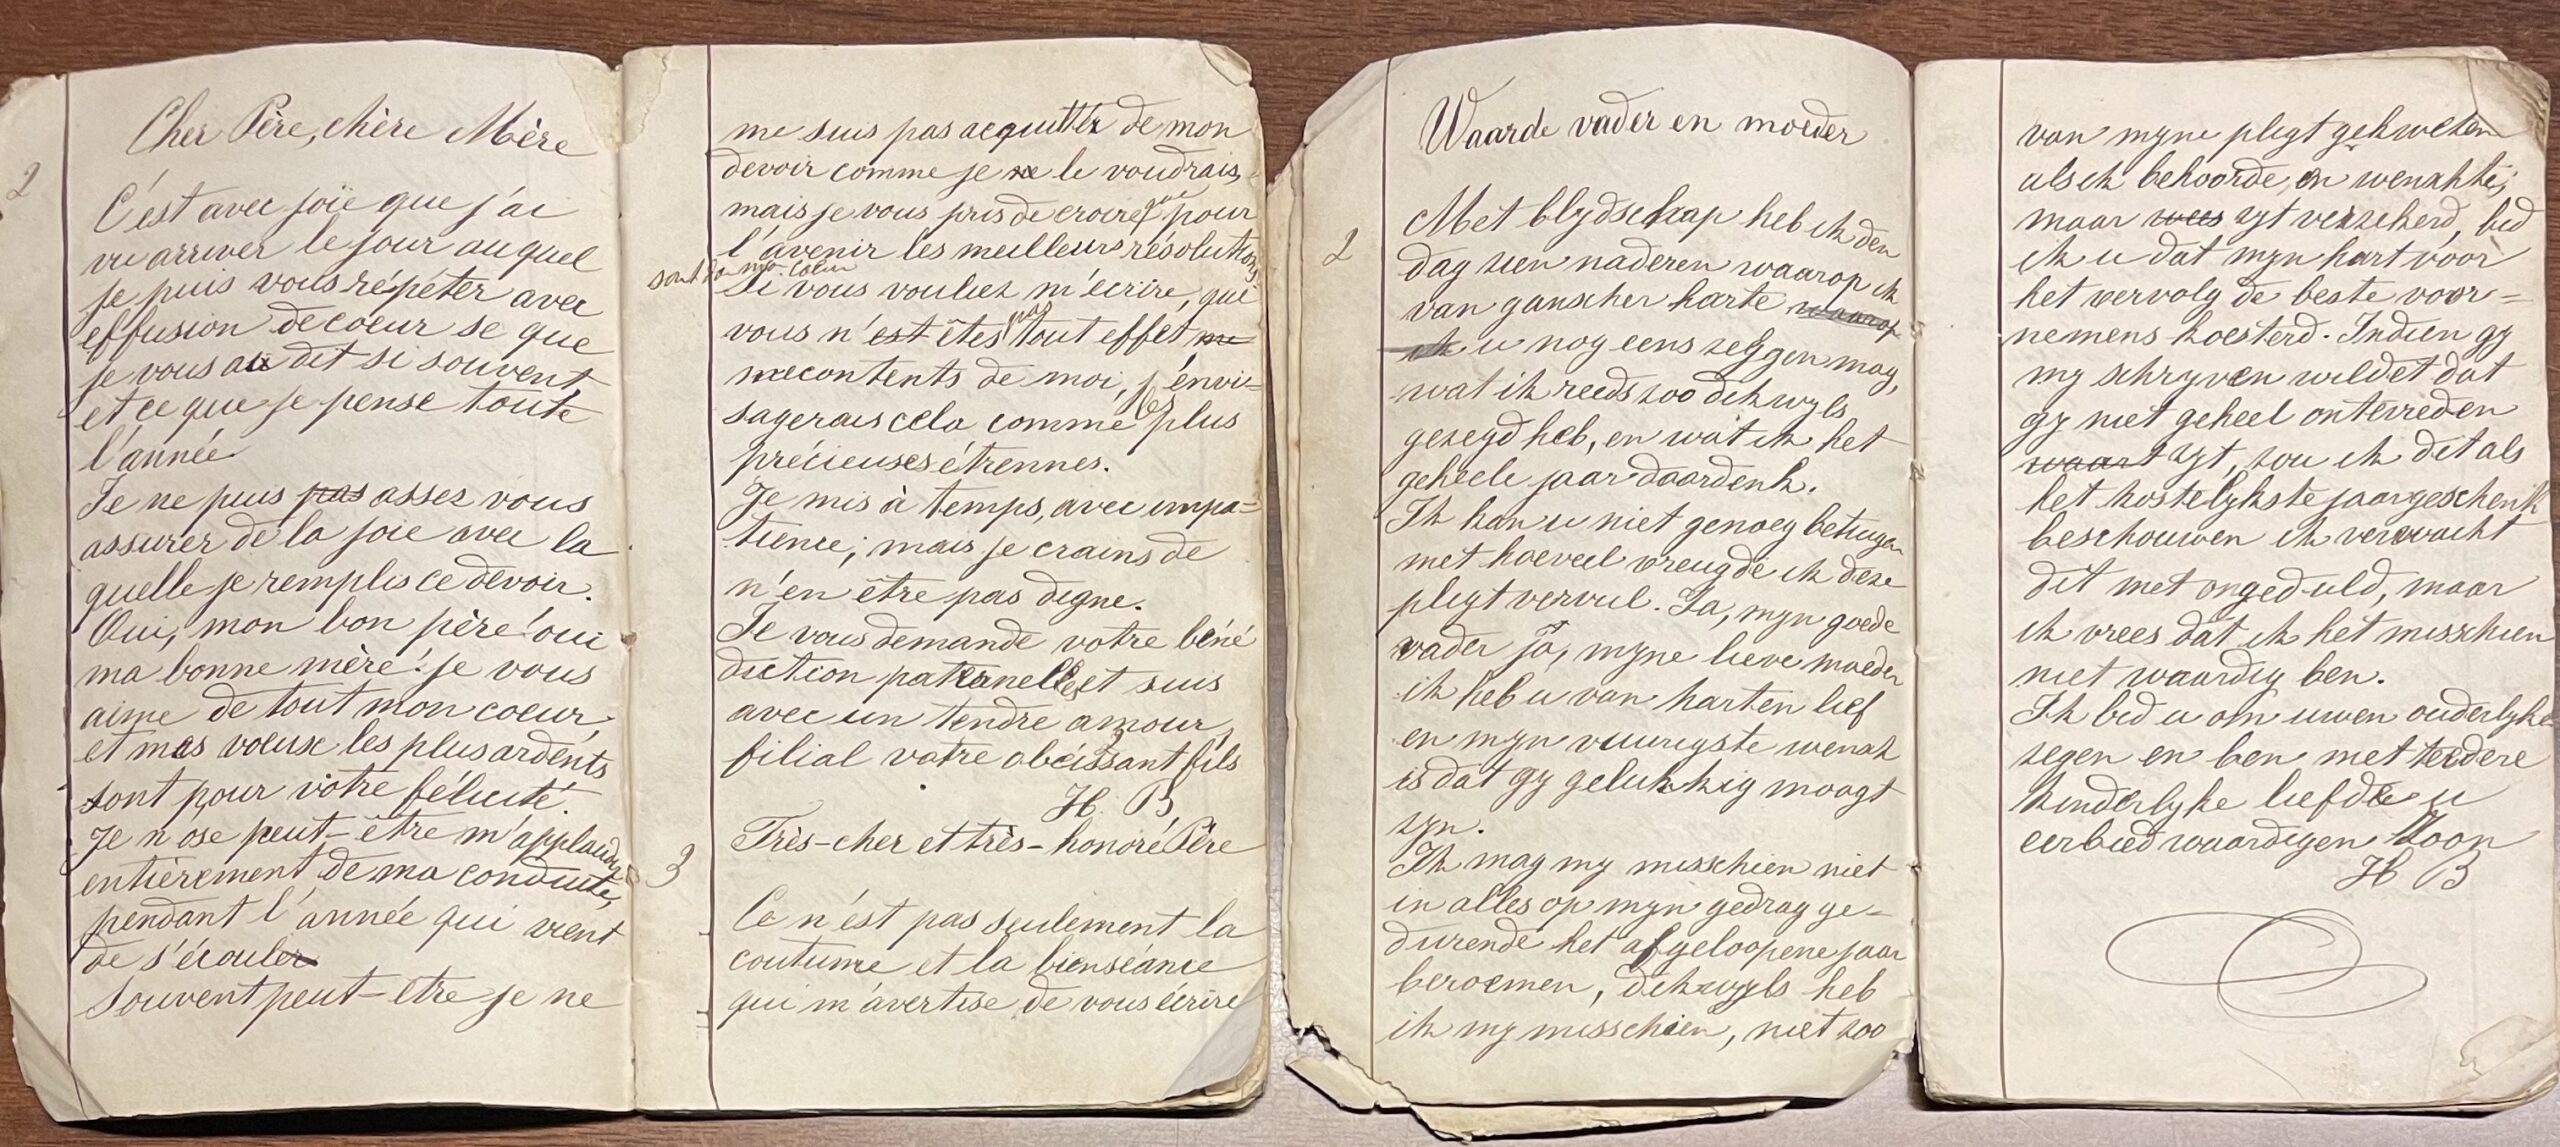 2
Cher Père, chère Mère
C'est avec joie que j'ai
vu arriver le jour auquel
je puis vous répéter avec
effusion de coeur se que
je vous ai dit si souvent,
et ce que je pense toute
l'année.
Je ne puis pas assez vous
assurer de la joie avec la
quelle je remplis ce devoir.
Oui, mon bon père! oui
ma bonne mère! je vous
aime de tout mon coeur,
et mes voeux les plus ardents
sont pour votre félicité.
Je n'ose peut-être m'applaudir
entièrement de ma conduite,
pendant l'année qui vient
de s'écouler
Souvent peut-etre je ne
me suis pas acquitté de mon
devoir comme je ne le voudrais,
mais je vous pris de croire qué pour
l'avenir les meilleurs résolutions
sont da mo coeur
Si vous vouliez m'écrire, que
vous n'est êtes pas tout effet me
mecontents de moi, j'envi=
sagerais cela comme les plus
précieuses étrennes.
Je mis à temps, avec impa=
tience; mais je crains de
n'en être pas digne.
Je vous demande votre béné
diction paternelle et suis
avec un tendre amour,
filial votre obéissant fils
H. B
3
Très-cher et très-honoré Père
Ce n'est pas seulement la
coutume et la bienséance
qui m'avertise de vous écrire
2
Waarde vader en moeder
Met blydschap heb ik den
dag zien naderen waarop ik
van ganscher harte waarop
ik u nog eens zeggen mag,
wat ik reeds zoo dikwyls
gezegd heb, en wat ik het
geheele jaar daardenk.
Ik kan u niet genoeg betuigen
met hoeveel vreugde ik deze
pligt vervul. Ja, myn goede
vader ja, myne lieve moeder
ik heb u van harten lief
en myn vuurigste wensch
is dat gy gelukkig moogt
zyn.
Ik mag my misschien niet
in alles op myn gedrag ge=
durende het afgeloopene jaar
beroemen, dikwyls heb
ik my misschien, niet zoo
van myne pligt gekweten
als ik behoorde, en wenschte;
maar wees zyt verzekerd, bid
ik u dat myn hart voor
het vervolg de beste voor=
nemens koesterd. Indien gy
my schryven wildet dat
gy niet geheel ontevreden
waart zyt, zou ik dit als
het kostelykste jaargeschenk
beschouwen ik verwacht
dit met ongeduld, maar
ik vrees dat ik het misschien
niet waardig ben.
Ik bid u om uwen ouderlyke
zegen en ben met tedere
kinderlyke liefde u
eerbiedwaardigen Zoon
H B